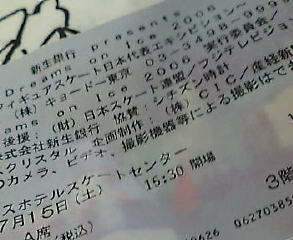 新生銀行 presents
Dreams on Ice 2006
フィギュアスケート日本代表エキシビション~
(株)キョードー東京 03-3498-999
ams on Ice 2006 実行委員会/
後援:(財)日本スケート連盟/フジテレビジョ
式会社新生銀行 協賛:シチズン時計
クリスタル 企画制作:(株)CIC/産経新
のカメラ、ビデオ、撮影機器等による撮影は
スホテルスケートセンター
7月15日(土) 15:30 開場
A席 3階
(税込)
06270385